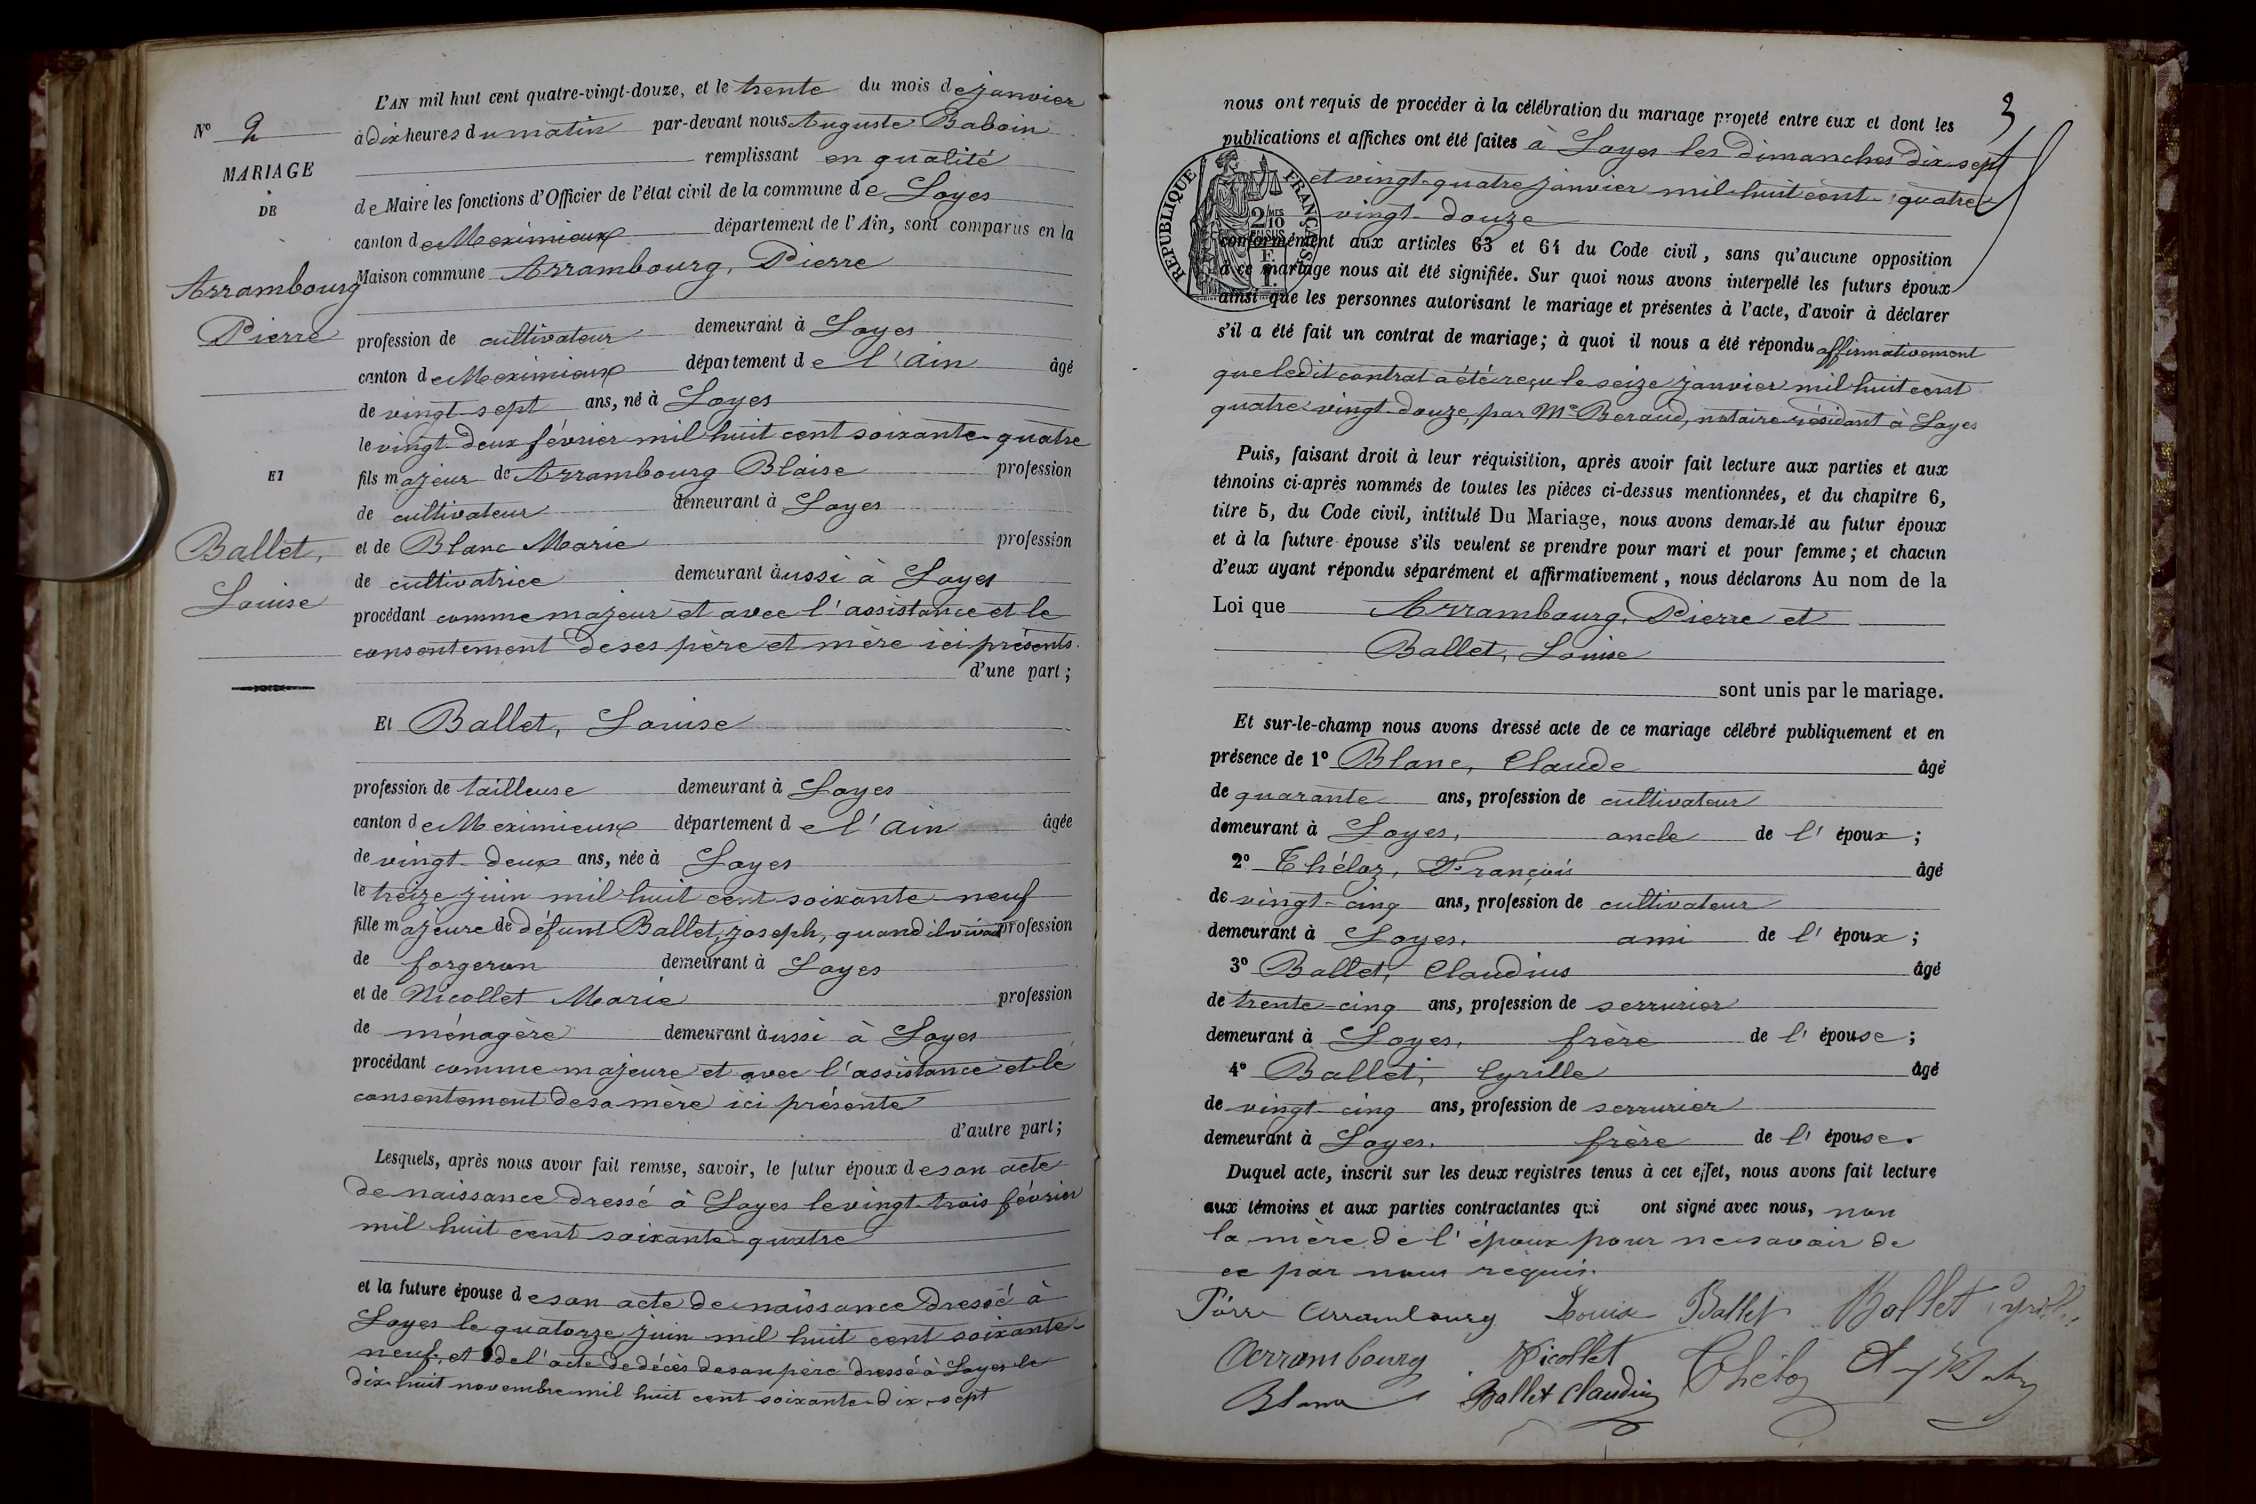 N° 2
MARIAGE
DE
Arrambourg
Pierre
ET
Ballet,
Louise
L'AN mil huit cent quatre-vingt-douze, et le trente du mois de janvier
à dix heures du matin par-devant nous Auguste Baboin
remplissant en qualité
de Maire les fonctions d'Officier de l'état civil de la commune de Loyes
canton de Meximieux département de l'Ain, sont comparus en la
Maison commune Arrambourg, Pierre
profession de cultivateur demeurant à Loyes
canton de Meximieux département de l'Ain âgé
de vingt-sept ans, né à Loyes
le vingt-deux février mil huit cent soixante-quatre
fils majeur de Arrambourg Blaise profession
de cultivateur demeurant à Loyes
et de Blanc Marie profession
de cultivatrice demeurant aussi à Loyes
procédant comme majeur et avec l'assistance et le
consentement de ses père et mère ici présents.
d'une part;
Et Ballet, Louise
profession de tailleuse demeurant à Loyes
canton de Meximieux département de l'Ain âgée
de vingt-deux ans, née à Loyes
le treize juin mil huit cent soixante-neuf
fille majeure de défunt Ballet, joseph, quand il vivait profession
de forgeron demeurant à Loyes
et de Nicollet Marie profession
de ménagère demeurant aussi à Loyes
procédant comme majeure et avec l'assistance et le
consentement de sa mère ici présente
d'autre part;
Lesquels, après nous avoir fait remise, savoir, le futur époux de son acte
de naissance dressé à Loyes le vingt-trois février
mil huit cent soixante-quatre
et la future épouse de son acte de naissance dressé à
Loyes le quatorze juin mil huit cent soixante-
neuf, et de l'acte de décès de son père dressé à Loyes le
dix-huit novembre mil huit cent soixante-dix-sept
3
nous ont requis de procéder à la célébration du mariage projeté entre eux et dont les
publications et affiches ont été faites à Loyes les dimanches dix-sept
et vingt-quatre janvier mil huit cent quatre-
vingt-douze
RÉPUBLIQUE FRANÇAISE
2 MES 10
EN SUS
conformément aux articles 63 et 64 du Code civil, sans qu'aucune opposition
à ce mariage nous ait été signifiée. Sur quoi nous avons interpellé les futurs époux
ainsi que les personnes autorisant le mariage et présentes à l'acte, d'avoir à déclarer
s'il a été fait un contrat de mariage; à quoi il nous a été répondu affirmativement
que ledit contrat a été reçu le seize janvier mil huit cent
quatre-vingt-douze, par Me Beraud, notaire résidant à Loyes
Puis, faisant droit à leur réquisition, après avoir fait lecture aux parties et aux
témoins ci-après nommés de toutes les pièces ci-dessus mentionnées, et du chapitre 6,
titre 5, du Code civil, intitulé Du Mariage, nous avons demandé au futur époux
et à la future épouse s'ils veulent se prendre pour mari et pour femme; et chacun
d'eux ayant répondu séparément et affirmativement, nous déclarons Au nom de la
Loi que Arrambourg, Pierre et
Ballet, Louise
sont unis par le mariage.
Et sur-le-champ nous avons dressé acte de ce mariage célébré publiquement et en
présence de 1° Blanc, Claude âgé
de quarante ans, profession de cultivateur
demeurant à Loyes, oncle de l'époux;
2° Théloz, François âgé
de vingt-cinq ans, profession de cultivateur
demeurant à Loyes, ami de l'époux;
3° Ballet, Claudius âgé
de trente-cinq ans, profession de serrurier
demeurant à Loyes, frère de l'épouse;
4° Ballet, Cyrille âgé
de vingt-cinq ans, profession de serrurier
demeurant à Loyes, frère de l'épouse.
Duquel acte, inscrit sur les deux registres tenus à cet effet, nous avons fait lecture
aux témoins et aux parties contractantes qui ont signé avec nous, non
la mère de l'époux pour ne savoir de
ce par nous requis.
Arrambourg Louise Ballet Ballet Cyrille
Arrambourg Nicollet Théloz
Blanc Ballet Claudius